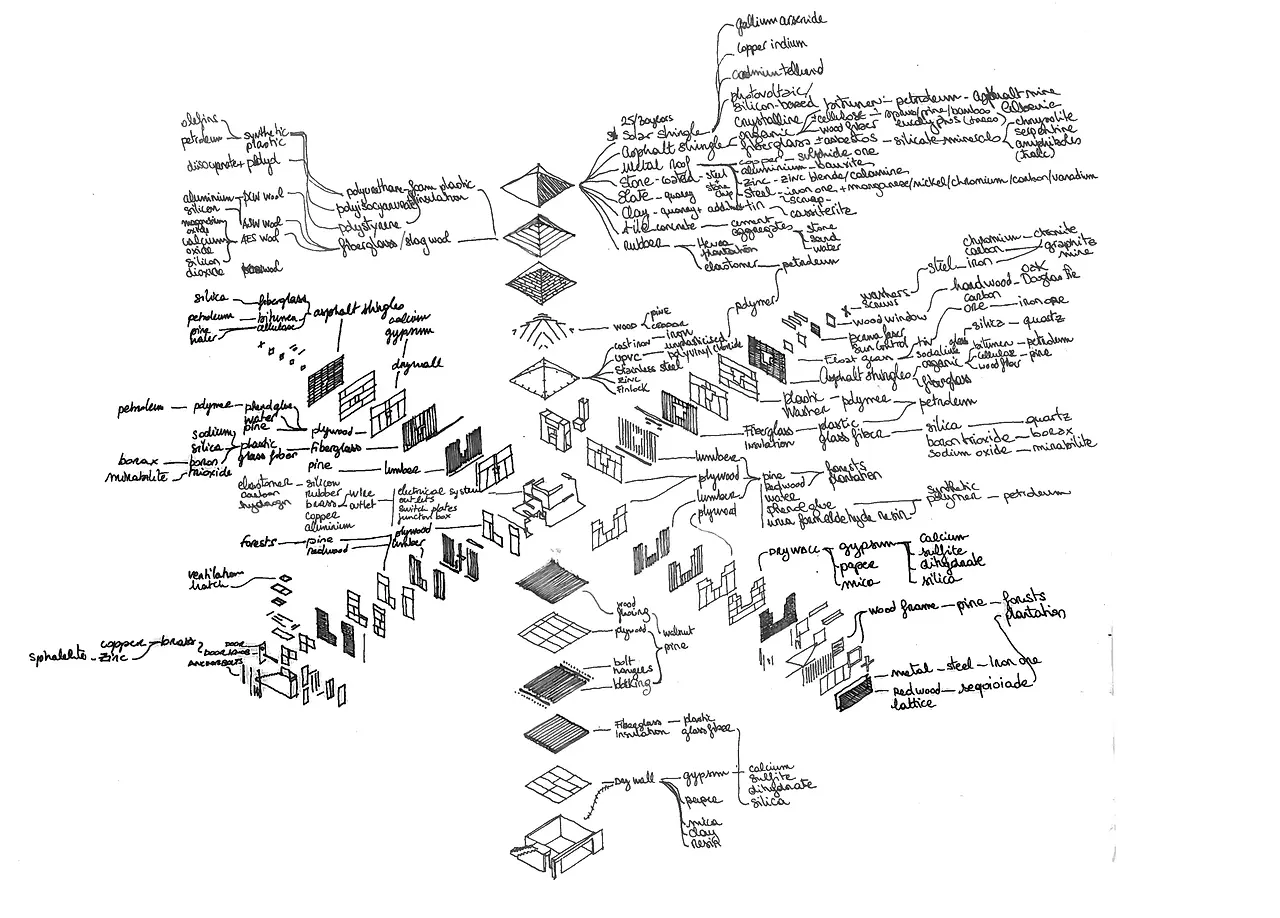 gallium arsenide
copper indium
photovoltaic/
silicon-based
crystalline
25/30 years
solar shingle
bitumen - petroleum - asphalt mine
organic
cellulose
wood fiber
spruce/pine/bamboo
eucalyptus
Asphalt shingle
fiberglass ± asbestos - silicate minerals
chrysolite
serpentine
amphiboles
(talc)
Metal roof
copper - sulphide ore
aluminium - bauxite
zinc - zinc blende/calamine
steel - iron ore + manganese/nickel/chromium/carbon/vanadium
scrap
tin
cassiterite
Stone-coated - steel
+
stone
chip
Slate - quarry
Clay - quarry +
tile concrete
cement
aggregates
stone
sand
water
rubber
Hevea
plantation
elastomer
petroleum
polymer
olefins
petroleum
synthetic
plastic
aluminium
silicon
magnesium
oxide
calcium
oxide
silicon
dioxide
AES wool
polyurethane-foam plastic
insulation
polyisocyanurate
polystyrene
fiberglass/slag wool
silica
fiberglass
petroleum
bitumen
cellulose
pine
water
asphalt shingles
calcium
gypsum
drywall
petroleum - polymer - phenol glue
water
pine
plywood
sodium
silica
boron
trioxide
plastic
glass fiber
Fiberglass
borax
mirabilite
pine - lumber
elastomer - silicon
carbon
hydrogen
rubber
brass
copper
aluminium
wire
outlet
electrical system
outlets
switch plates
junction box
forests
pine
redwood
plywood
lumber
ventilation
hatch
sphalelite - zinc
copper - brass
DOOR
ANCHOR BOLTS
wood
pine
cast iron - iron
uPVC
unplasticised
polyvinyl chloride
stainless steel
zinc
Finlock
washers
screws
steel
chromium - chromite
carbon
iron
graphite
mine
wood window
hardwood
oak
Douglas Fir
carbon
ore - iron ore
sun control
Float glass
tin
soda lime
glass
silica - quartz
Asphalt shingles
organic
bitumen - petroleum
cellulose
wood fiber
pine
fiberglass
plastic
washer
polymer
petroleum
Fiberglass
insulation
plastic
glass fiber
silica
boron trioxide
sodium oxide
quartz
borax
mirabilite
lumber
plywood
lumber
plywood
pine
redwood
water
phenol glue
urea formaldehyde resin
forests
plantation
synthetic
polymer - petroleum
DRYWALL
gypsum
paper
mica
calcium
sulfite
dihydrate
silica
wood frame - pine - forests
plantation
metal - steel - Iron ore
Redwood
lattice
seqoioiade
wood
flooring
plywood
bolt
hangers
blocking
walnut
pine
Fiberglass
Insulation
plastic
glass fiber
Dry wall
gypsum
calcium
sulfite
dihydrate
silica
paper
mica
clay
resin